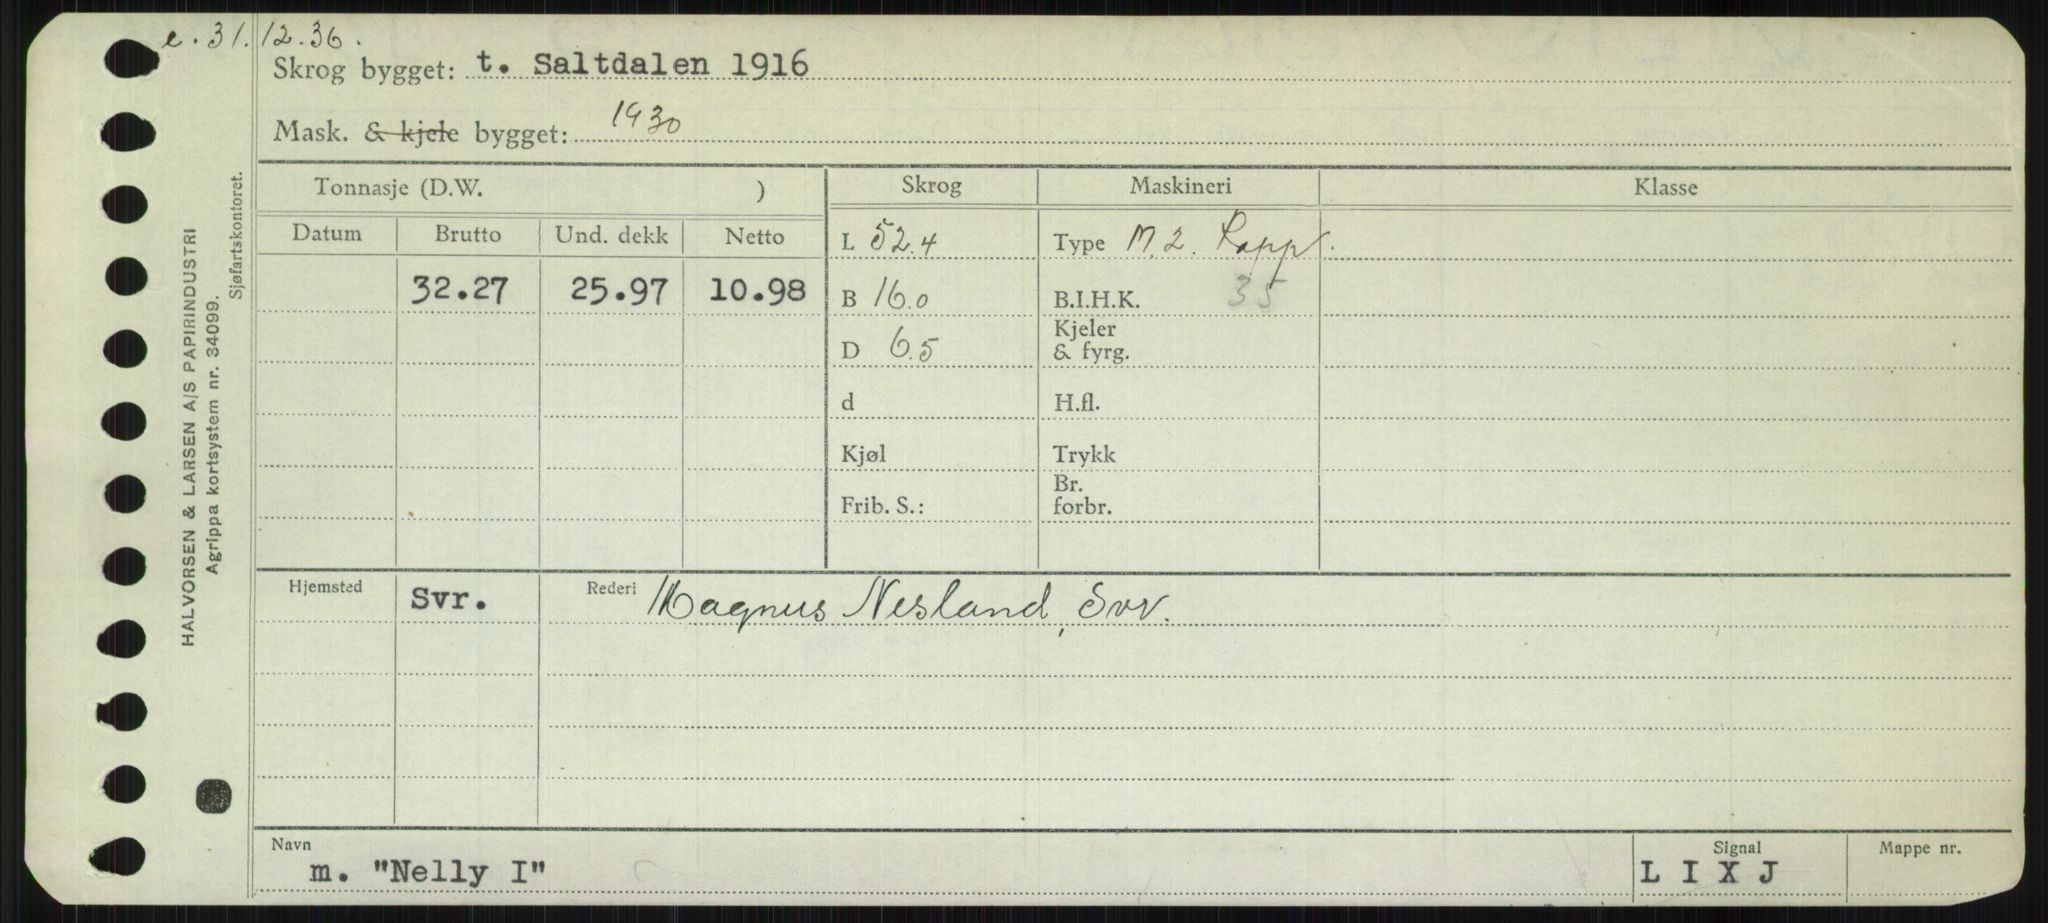 e. 31.12.36.
Skrog bygget: t. Saltdalen 1916
Mask. & kjele bygget: 1930
Tonnasje (D.W. )
Skrog
Maskineri
Klasse
Datum
Brutto
Und. dekk
Netto
32.27
25.97
10.98
L 52.4
B 16.0
D 6.5
d
Kjøl
Frib. S.:
Type M. 2. Rapp.
B.I.H.K. 35
Kjeler
& fyrg.
H.fl.
Trykk
Br.
forbr.
Hjemsted
Svr.
Rederi Magnus Nesland, Svv.
Navn
m. "Nelly I"
Signal
L I X J
Mappe nr.
HALVORSEN & LARSEN A/S PAPIRINDUSTRI
Agrippa kortsystem nr. 34099.
Sjøfartskontoret.